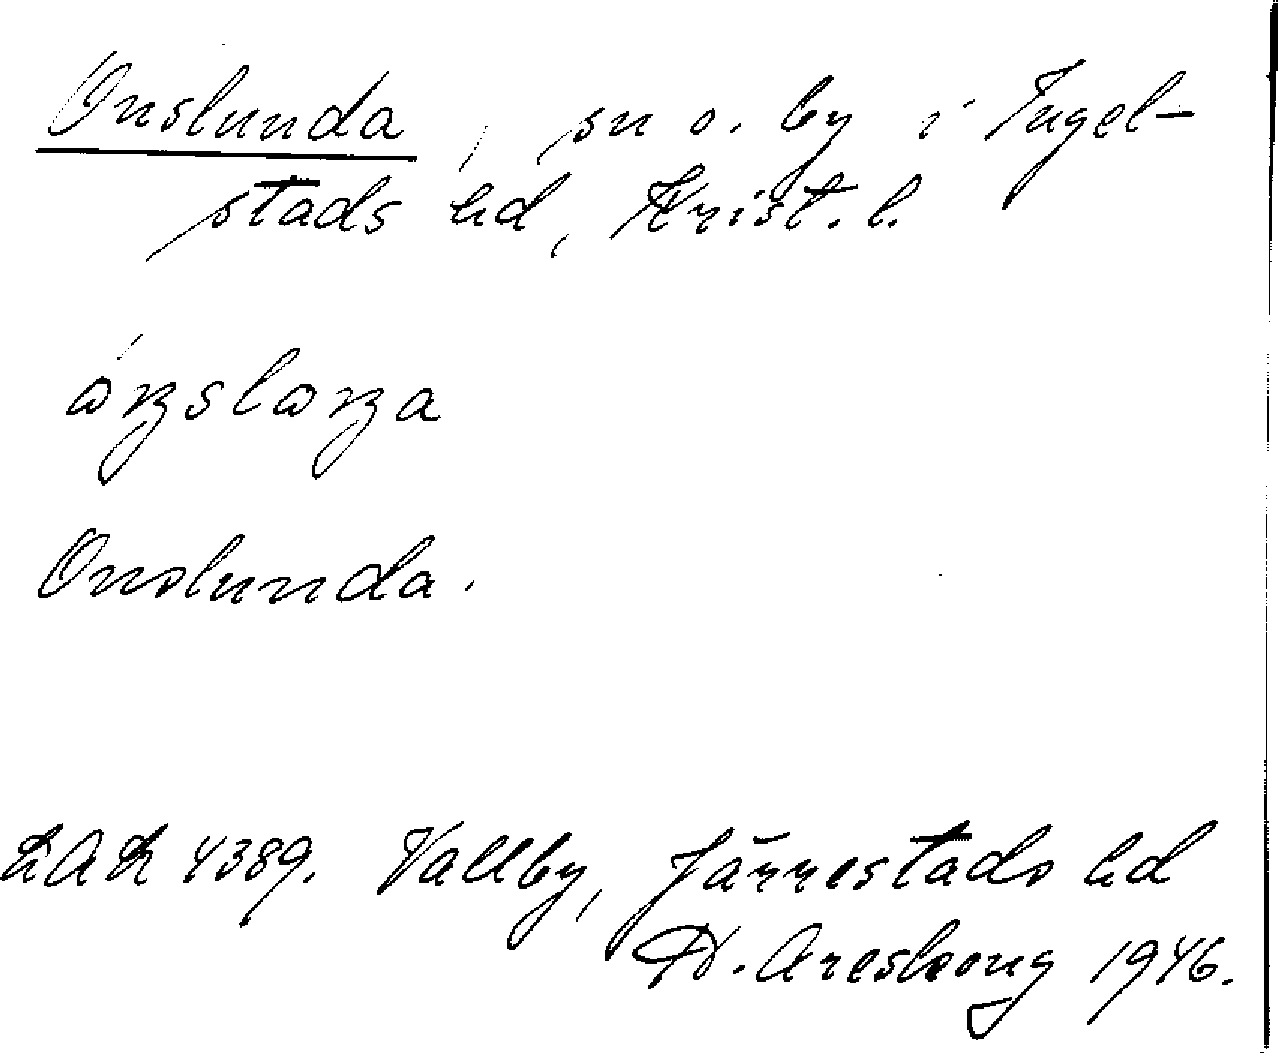 Onslunda, sn o. by i Ingel-
stads hd, Krist. l.
Onslunda.
LAL 4389. Vallby, Järrestads hd
Areskoug 1946.